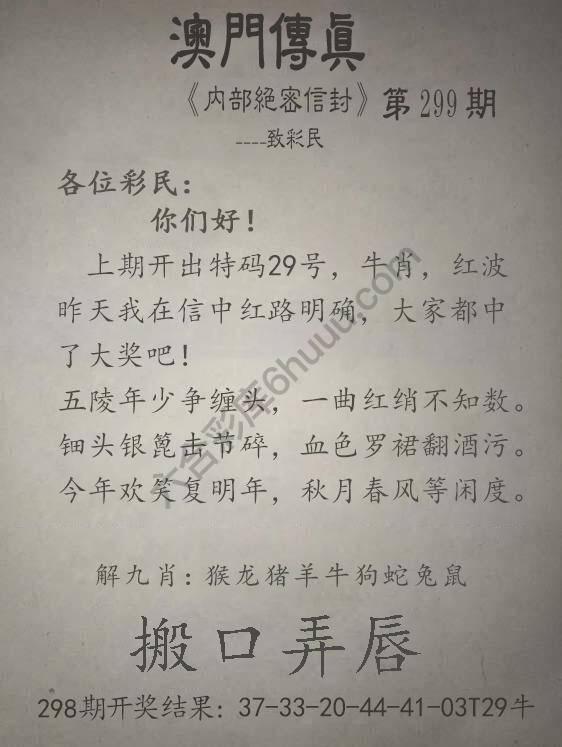 澳門傳眞
《内部絕密信封》第299期
----致彩民
各位彩民：
你们好！
上期开出特码29号，牛肖，红波
昨天我在信中红路明确，大家都中
了大奖吧！
五陵年少争缠头，一曲红绡不知数。
钿头银篦击节碎，血色罗裙翻酒污。
今年欢笑复明年，秋月春风等闲度。
解九肖：猴龙猪羊牛狗蛇兔鼠
搬口弄唇
298期开奖结果：37-33-20-44-41-03T29牛
六合彩库6huuu.com